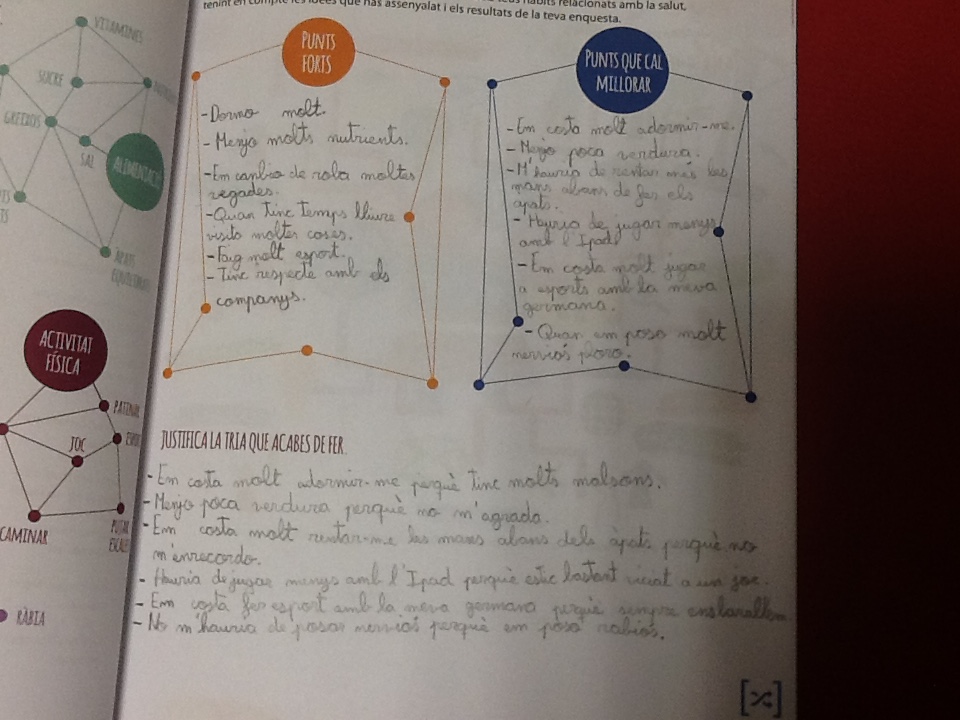 teus hàbits relacionats amb la salut,
tenint en compte les idees que has assenyalat i els resultats de la teva enquesta.
VITAMINES
SUCRE
GREIXOS
SAL
ALIMENTACIÓ
ÀPATS
ACTIVITAT
FÍSICA
PATINAR
JOC
CAMINAR
RÀBIA
PUNTS
FORTS
-Dormo molt.
-Menjo molts nutrients.
-Em canbio de roba moltes
vegades.
-Quan tinc temps lliure
visito moltes coses.
-Faig molt esport.
-Tinc respecte amb els
companys.
PUNTS QUE CAL
MILLORAR
-Em costa molt adormir-me.
-Menjo poca verdura.
-M'hauria de rentar més les
mans abans de fer els
àpats.
-Hauria de jugar menys
amb l'Ipad
-Em costa molt jugar
a esports amb la meva
germana.
-Quan em poso molt
nerviós
JUSTIFICA LA TRIA QUE ACABES DE FER.
-Em costa molt adormir-me perquè tinc molts malsons.
-Menjo poca verdura perquè no m'agrada.
-Em costa molt rentar-me les mans abans dels àpats perquè no
m'enrecordo.
-Hauria de jugar menys amb l'Ipad perquè estic bastant viciat a un joc.
-Em costa fer esport amb la meva germana perquè sempre ens barallem
-No m'hauria de posar nerviós perquè em poso rabiós.